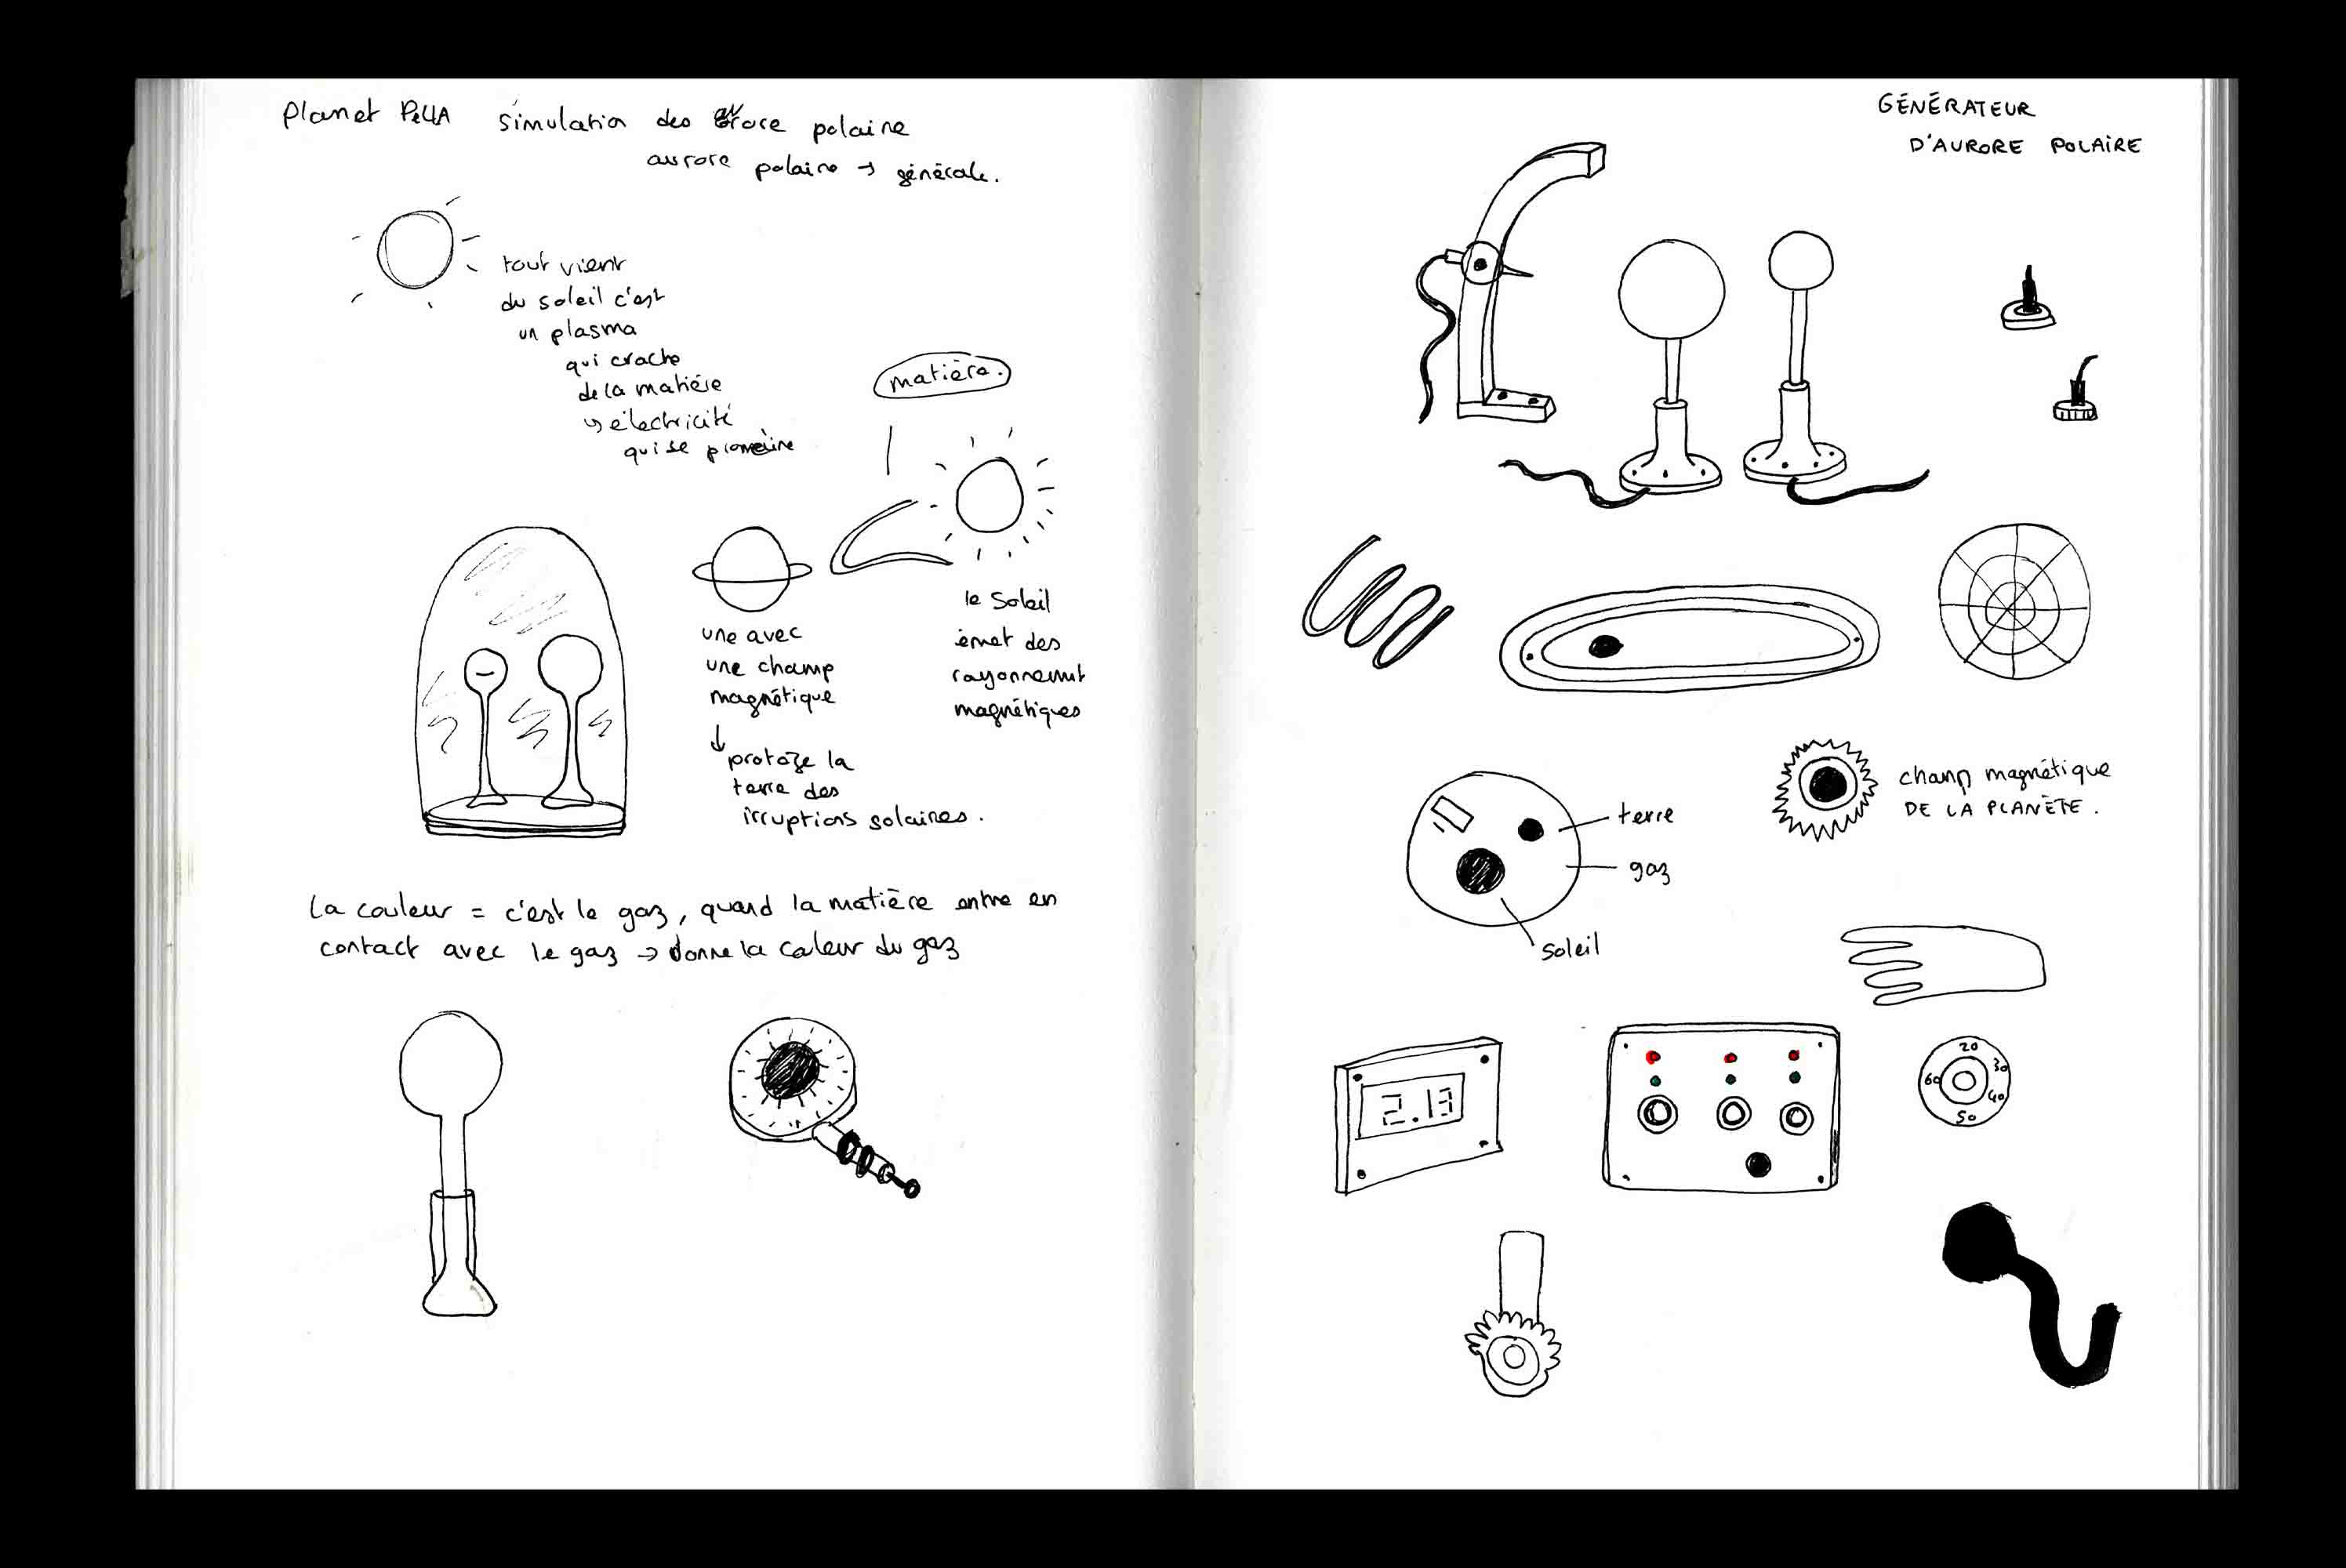 Planet PellA simulation des aurore polaire
aurore polaire → générale.
tout vient
du soleil c'est
un plasma
qui crache
de la matière
↪ électricité
qui se promène
matière.
une avec
une champ
magnétique
↓
protège la
terre des
irruptions solaires.
le Soleil
émet des
rayonnement
magnétiques
La couleur = c'est le gaz, quand la matière entre en
contact avec le gaz → donne la couleur du gaz
GÉNÉRATEUR
D'AURORE POLAIRE
champ magnétique
DE LA PLANÈTE.
terre
gaz
soleil
2.13
20
30
40
50
60